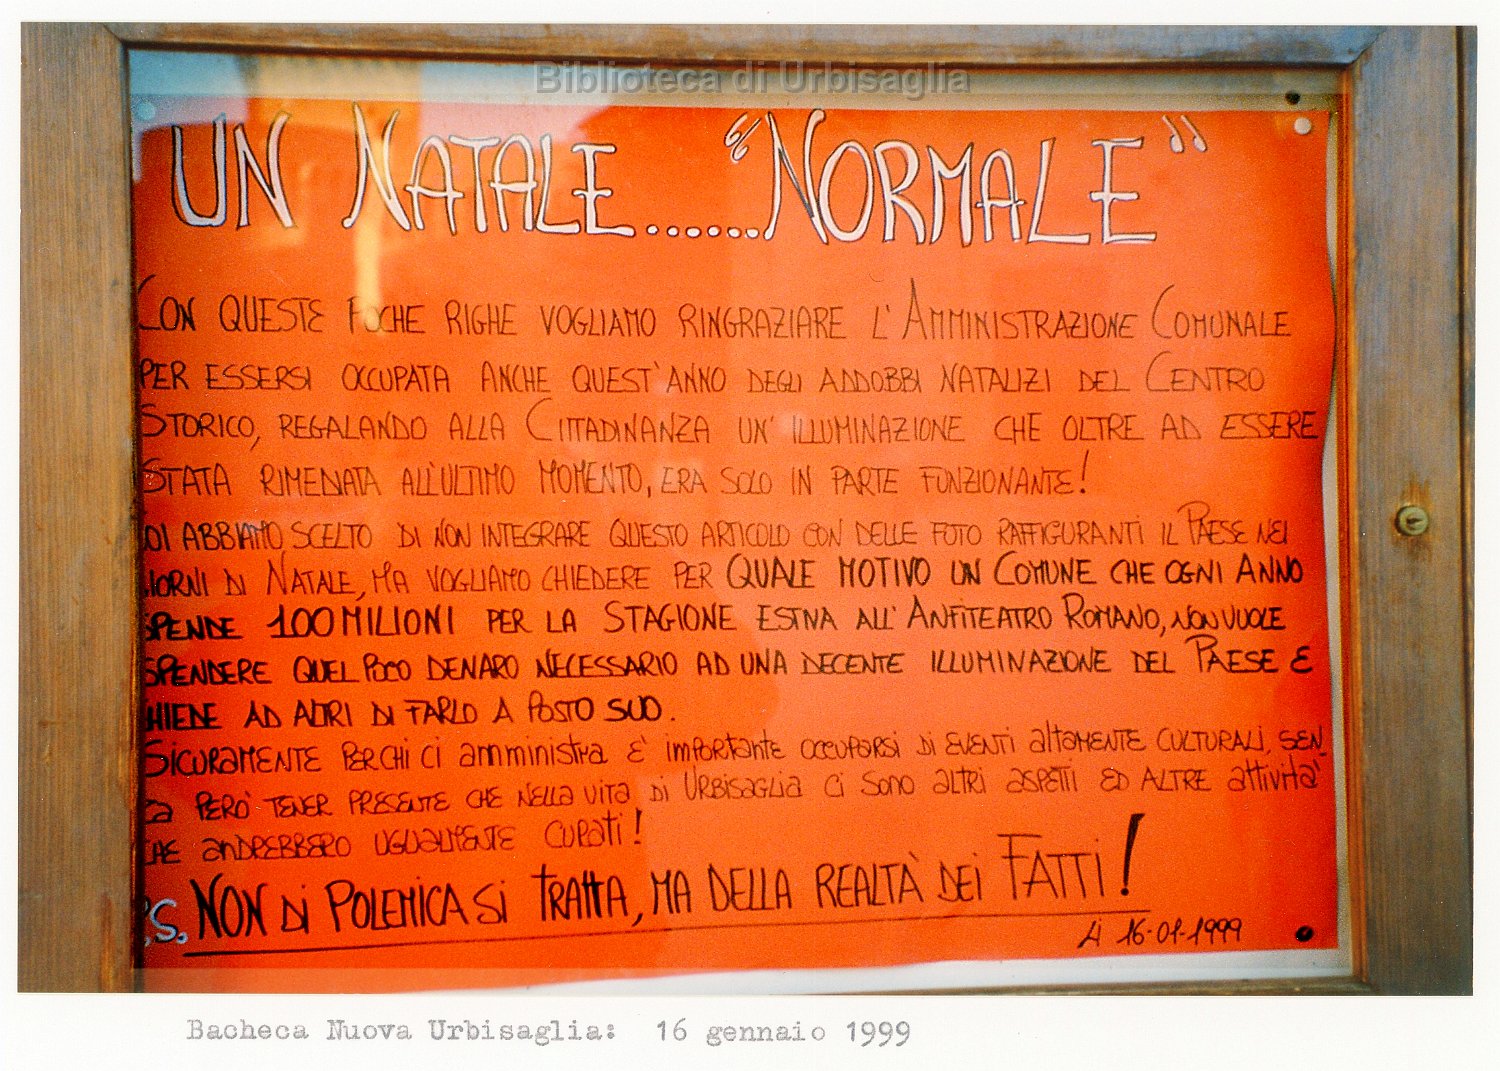 Biblioteca di Urbisaglia
UN NATALE....... "NORMALE"
CON QUESTE POCHE RIGHE VOGLIAMO RINGRAZIARE L'AMMINISTRAZIONE COMUNALE
PER ESSERSI OCCUPATA ANCHE QUEST'ANNO DEGLI ADDOBBI NATALIZI DEL CENTRO
STORICO, REGALANDO ALLA CITTADINANZA UN'ILLUMINAZIONE CHE OLTRE AD ESSERE
STATA RIMEDIATA ALL'ULTIMO MOMENTO, ERA SOLO IN PARTE FUNZIONANTE!
OI ABBIAMO SCELTO DI NON INTEGRARE QUESTO ARTICOLO CON DELLE FOTO RAFFIGURANTI IL PAESE NEI
IORNI DI NATALE, MA VOGLIAMO CHIEDERE PER QUALE MOTIVO UN COMUNE CHE OGNI ANNO
SPENDE 100 MILIONI PER LA STAGIONE ESTIVA ALL'ANFITEATRO ROMANO, NON VUOLE
SPENDERE QUEL POCO DENARO NECESSARIO AD UNA DECENTE ILLUMINAZIONE DEL PAESE E
HIEDE AD ALTRI DI FARLO A POSTO SUO.
SICURAMENTE PER CHI CI AMMINISTRA E' IMPORTANTE OCCUPARSI DI EVENTI ALTAMENTE CULTURALI, SEN
ZA PERÒ TENER PRESENTE CHE NELLA VITA DI URBISAGLIA CI SONO ALTRI ASPETTI ED ALTRE ATTIVITA'
HE ANDREBBERO UGUALMENTE CURATI!
P.S. NON DI POLEMICA SI TRATTA, MA DELLA REALTÀ DEI FATTI!
Lì 16-01-1999
Bacheca Nuova Urbisaglia: 16 gennaio 1999